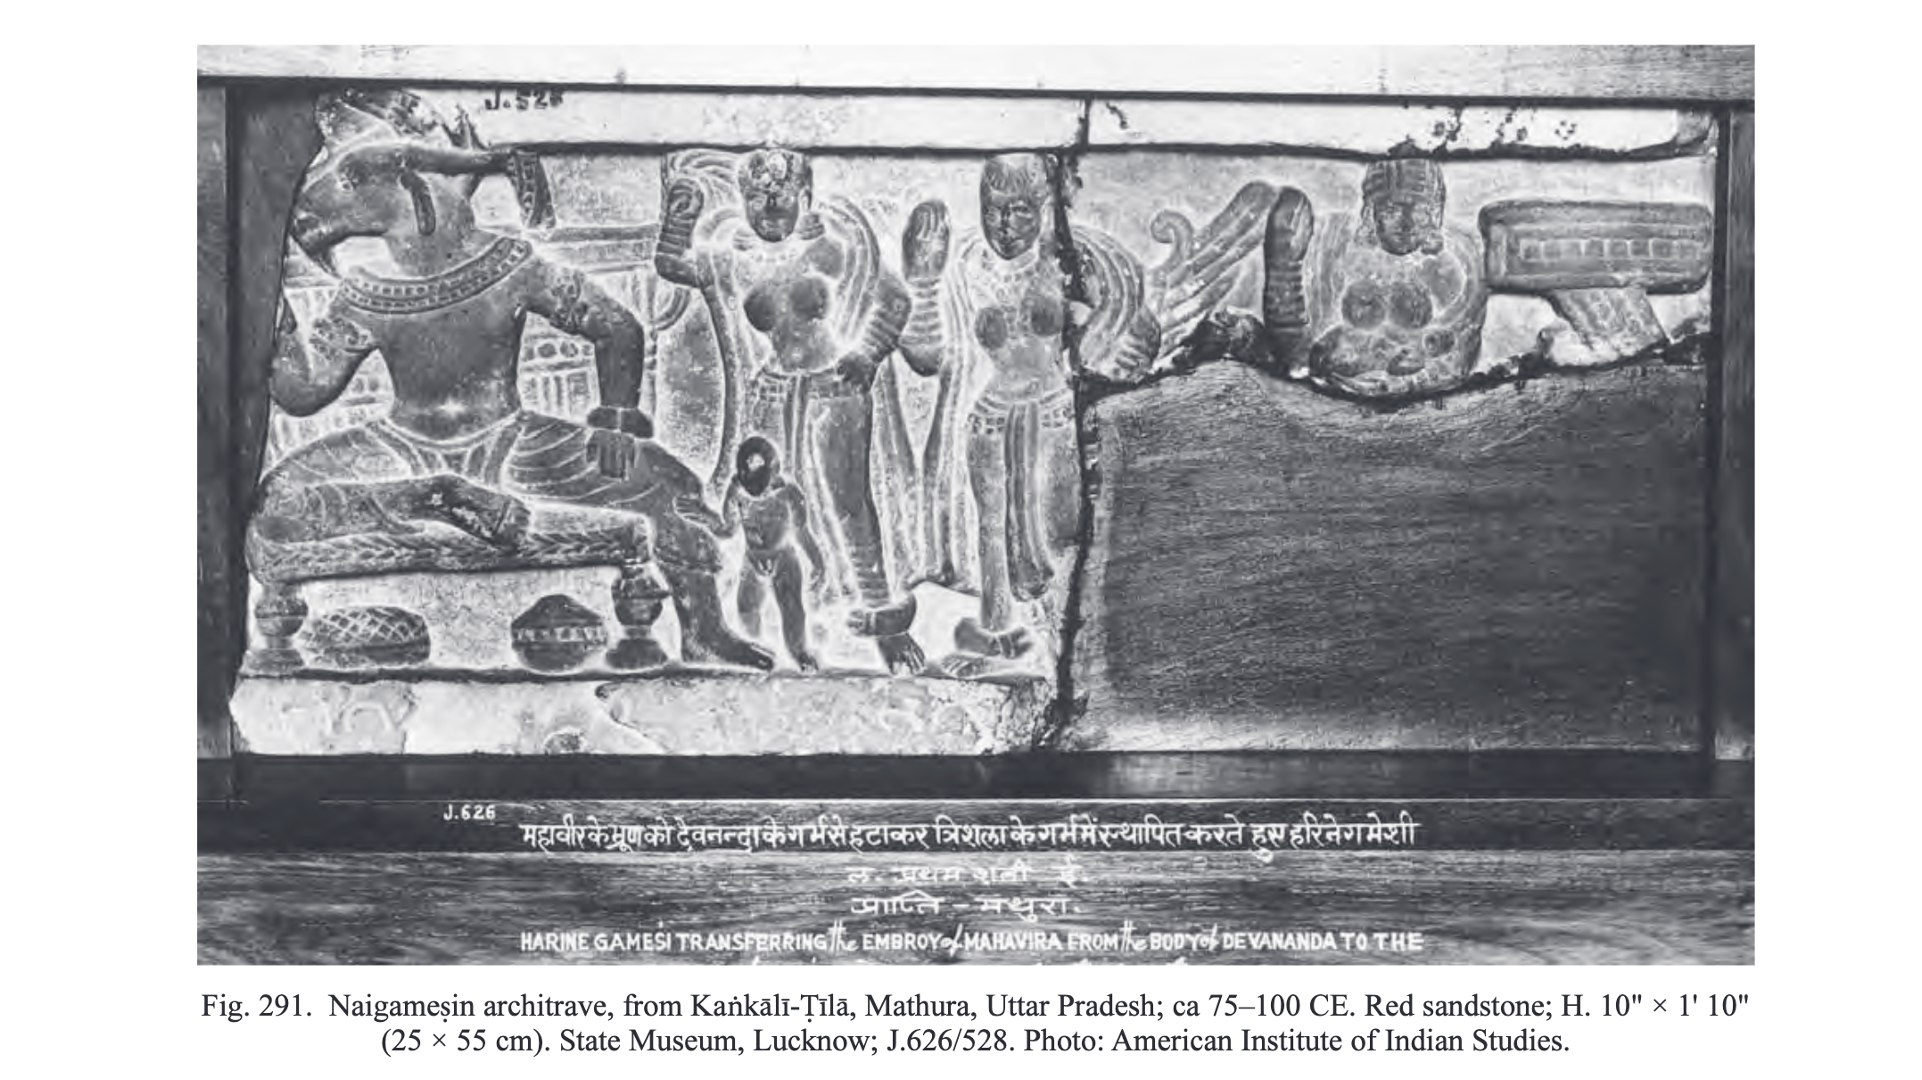 J.526
J.626
महावीर के भ्रूण को देवनन्दा के गर्भ से हटाकर त्रिशला के गर्भ में स्थापित करते हुए हरिनेगमेशी
ल. प्रथम शती ई.
प्राप्ति - मथुरा.
HARINEGAMESI TRANSFERRING the EMBROY of MAHAVIRA FROM the BODY of DEVANANDA TO THE
Fig. 291. Naigameṣin architrave, from Kaṅkālī-Ṭīlā, Mathura, Uttar Pradesh; ca 75–100 CE. Red sandstone; H. 10" × 1' 10"
(25 × 55 cm). State Museum, Lucknow; J.626/528. Photo: American Institute of Indian Studies.